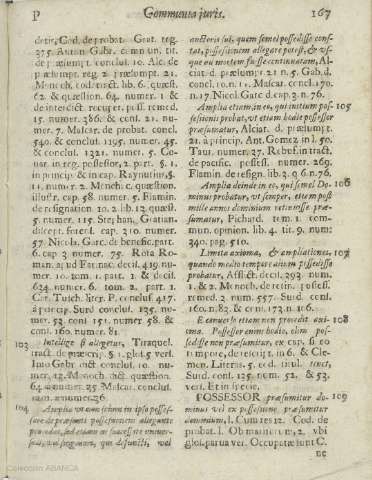 P Commenta juris. 167
detis, Cod. de probat. Grat. reg.
275. Anton. Gabr. commun. tit.
de præsumpt. conclus. 10. Alc. de
præsumpt. reg. 2. præsumpt. 21.
Menoch. cod. tract. lib. 6. quæst.
62. & quæstion. 64. numer. 1. &
de interdict. recuper. poss. remed.
15. numer. 386. & cons. 21. nu-
mer. 7. Mascar. de probat. concl.
540. & conclus. 1195. numer. 45.
& conclus. 1321. numer. 5. Co-
var. in reg. possessor, 2. part. §. 1.
in princip. & in cap. Raynutius, §.
11. numer. 2. Menoch. c. quæstion.
illustr. cap. 58. numer. 5. Flamin.
de resignation. 10. 2. lib. 12. quæst.
5. numer. 115. Stephan. Gratian.
discept. forens. cap. 310. numer.
57. Nicola. Garc. de benefic. part.
6. cap. 3. numer. 75. Rota Ro-
man. apud Farinac. decis. 419. nu-
mer. 10. tom. 1. part. 2. & decis.
624. numer. 6. tom. 2. part. 1.
Car. Tusch. liter. P. conclus. 417.
à princip. Surd. cons. 135. nu-
mer. 53. cons. 151. numer. 58. &
cons. 160. numer. 81.
103 Intellige & allegetur, Tiraquel.
tract. de præscrip. §. 1. glos. 5. vers.
Imo Gabr. dict. conclus. 10. nu-
mer. 12. Monoch. dict. quæstion.
64. numer. 25. Mascar. conclus.
num. numer. 26.
104 Amplia ut non solum in ipso posses-
sore de præsenti possessionem allegante
procedat, sed etiam in successore univer-
sali, aut singulari, qui defuncti, vel
auctoris sui, quem semel possedisse cons-
tat, possessionem allegare potest, & us-
que ad mortem fuisse continuatam, Al-
ciat. d. præsumpt. 21. n. 5. Gab. d.
concl. 10. n. 14. Mascar. concl. 170.
n. 17. Nicol. Garc. d. cap. 3. n. 76.
Amplia etiam in eo, qui initium pos- 105
sessionis probat, ut etiam hodie possessor
præsumatur, Alciat. d. præsumpt.
21. à princip. Ant. Gomez. in l. 50.
Taur. numer. 27. Rebuf. in tract.
de pacific. possess. numer. 269.
Flamin. de resign. lib. 3. q. 6. n. 76.
Amplia deinde in eo, qui semel Do- 106
minus probatur, ut semper, etiam post
mille annos dominium retinuisse præ-
sumatur, Pichard. tem. 1. comm-
mun. opinion. lib. 4. tit. 9. num.
340. pag. 510.
Limita axioma, & ampliationes, 107
quando modico tempore aliàm possedisse
probatur, Afflict. decis. 293. num.
1. & 2. Menoch. de retin. possess.
remed. 3. num. 557. Surd. cons.
160. n. 82. & cons. 173. n. 116.
E contra le etiam non procedit axi- 108
oma. Possessor enim hodie, olim pos-
sedisse non præsumitur, ex cap. si eo
tempore, de rescript. in 6. & Cle-
men. Literis, 5. eod. titul. tenet,
Surd. cons. 125. num. 52. & 53.
vers. Et in specie.
POSSESSOR præsumitur do- 109
minus vel ex possessione præsumitur
dominium, l. Cum res 12. Cod. de
probat. l. Ob maiorum, 2. ubi
glos. parua ver. Occupatæ sunt C.
ne
Colección ABANCA